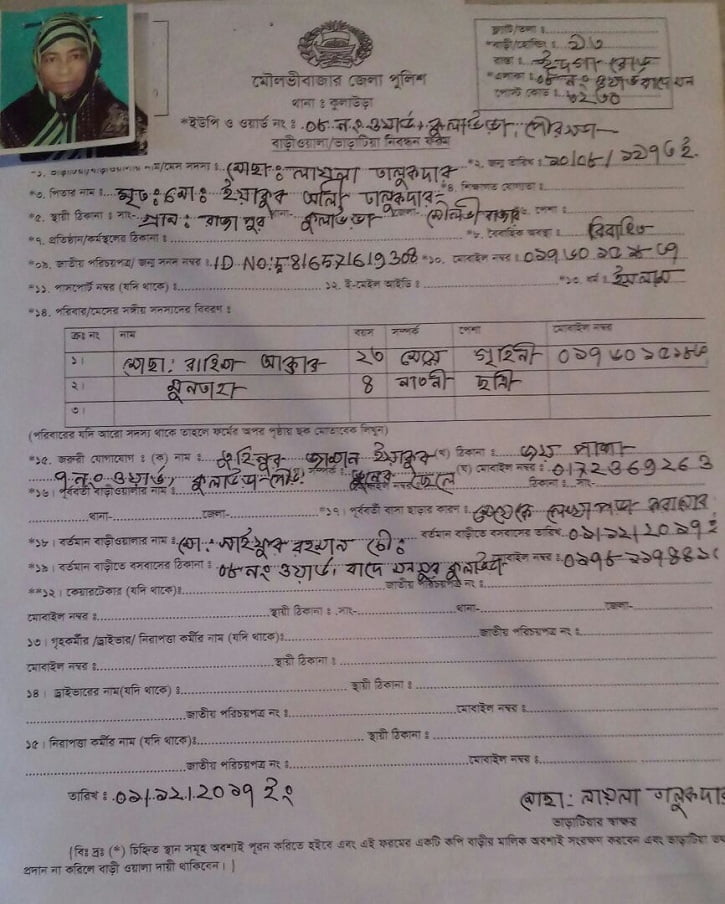 ফ্লাট/তলা :
*বাড়ী/হোল্ডিং : ১৩
রাস্তা : ঈদগা রোড
*এলাকা : ০৮ নং ওয়ার্ড বাদে মন
পোস্ট কোড : ৩২৩০
মৌলভীবাজার জেলা পুলিশ
থানা : কুলাউড়া
*ইউপি ও ওয়ার্ড নং : ০৮ নং ওয়ার্ড, কুলাউড়া, পৌরসভা
বাড়ীওয়ালা/ভাড়াটিয়া নিবন্ধন ফরম
মোছা: লায়লা তালুকদার *২. জন্ম তারিখ :
*৩. পিতার নাম : মৃত: মো: ইয়াকুব আলী তালুকদার
*৫. স্থায়ী ঠিকানা : সাং- গ্রাম: রাজাপুর থানা- কুলাউড়া জেলা- মৌলভীবাজার
*৭. প্রতিষ্ঠান/কর্মস্থলের ঠিকানা : *৮. বৈবাহিক অবস্থা : বিবাহিত
*০৯. জাতীয় পরিচয়পত্র/ জন্ম সনদ নম্বর : ID NO: 5816571619308 *১০. মোবাইল নম্বর :
*১১. পাসপোর্ট নম্বর (যদি থাকে) : ১২. ই-মেইল আইডি : *১৩. ধর্ম : ইসলাম
*১৪. পরিবার/মেসের সঙ্গীয় সদস্যদের বিবরণ :
ক্রঃ নং নাম বয়স সম্পর্ক পেশা মোবাইল নম্বর
১। মোছা: রাহিনা আক্তার ২৩ মেয়ে গৃহিনী
২। মুনতাহা ৪ নাতনী ছাত্রী
৩।
(পরিবারের যদি আরো সদস্য থাকে তাহলে ফর্মের অপর পৃষ্ঠায় ছক মোতাবেক লিখুন)
*১৫. জরুরী যোগাযোগ : (ক) নাম : (খ) ঠিকানা : জয় পাশা
৭ নং ওয়ার্ড, কুলাউড়া পৌর: সম্পর্ক : ছেলে (ঘ) মোবাইল নম্বর : 0172369263
*১৬। পূর্ববর্তী বাড়ীওয়ালার নাম : ঠিকানা : সাং-
থানা- জেলা- *১৭। পূর্ববর্তী বাসা ছাড়ার কারণ :
*১৮। বর্তমান বাড়ীওয়ালার নাম : মো: সাইফুর রহমান চৌ: বর্তমান বাড়ীতে বসবাসের তারিখ ০১/১২/২০১৭ ইং
*১৯। বর্তমান বাড়ীতে বসবাসের ঠিকানা : ০৮ নং ওয়ার্ড, বাদে মনসুর কুলাউড়া মোবাইল নম্বর :
**১২। কেয়ারটেকার (যদি থাকে) : জাতীয় পরিচয়পত্র নং :
মোবাইল নম্বর : স্থায়ী ঠিকানা : সাং- থানা- জেলা-
১৩। গৃহকর্মীর /ড্রাইভার/ নিরাপত্তা কর্মীর নাম (যদি থাকে) : জাতীয় পরিচয়পত্র নং :
মোবাইল নম্বর : স্থায়ী ঠিকানা :
১৪। ড্রাইভারের নাম(যদি থাকে) : স্থায়ী ঠিকানা :
জাতীয় পরিচয়পত্র নং : মোবাইল নম্বর :
১৫। নিরাপত্তা কর্মীর নাম (যদি থাকে) : স্থায়ী ঠিকানা :
জাতীয় পরিচয়পত্র নং : মোবাইল নম্বর :
তারিখ : ০১/১২/২০১৭ ইং
মোছা: লায়লা তালুকদার
ভাড়াটিয়ার স্বাক্ষর
[বিঃ দ্রঃ (*) চিহ্নিত স্থান সমূহ অবশ্যই পূরন করিতে হইবে এবং এই ফরমের একটি কপি বাড়ীর মালিক অবশ্যই সংরক্ষণ করবেন এবং ভাড়াটিয়া
প্রদান না করিলে বাড়ী ওয়ালা দায়ী থাকিবেন। ]